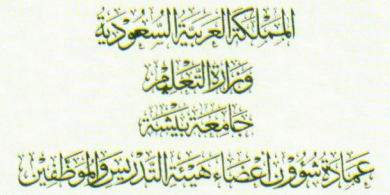 المملكة العربية السعودية
وزارة التعليم
جامعة بيشة
عمادة شؤون أعضاء هيئة التدريس والموظفين